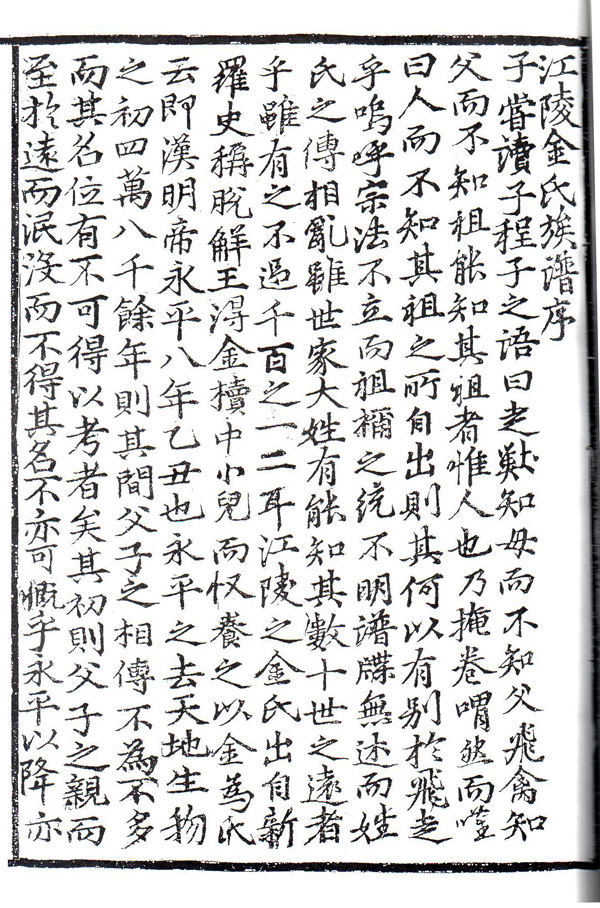 江陵金氏族譜序
子嘗讀子程子之語曰走獸知母而不知父飛禽知
父而不知祖能知其祖者惟人也乃掩卷喟然而嘆
曰人而不知其祖之所自出則其何以有別於飛走
乎嗚呼宗法不立而祖禰之統不明譜牒無述而姓
氏之傳相亂雖世家大姓有能知其數十世之遠者
乎雖有之不過千百之一二耳江陵之金氏出自新
羅史稱脫解王得金櫝中小兒而收養之以金為氏
云即漢明帝永平八年乙丑也永平之去天地生物
之初四萬八千餘年則其間父子之相傳不為不多
而其名位有不可得以考者矣其初則父子之親而
至於遠而泯沒而不得其名不亦可慨乎永平以降亦